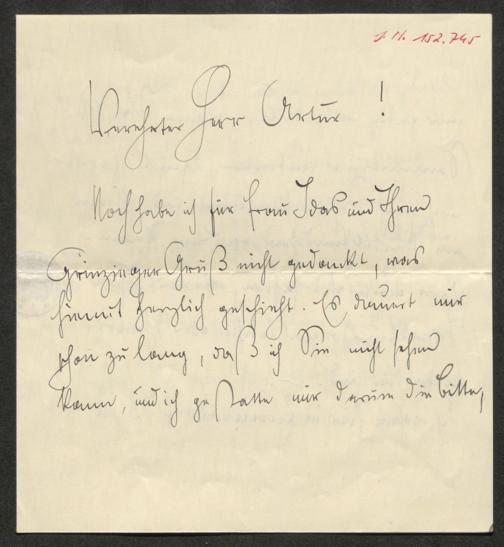 J. N. 152.745
Verehrter Herr Artur!
Noch habe ich für Frau Idas und Ihren
Grinzinger Gruß nicht gedankt, was
hiemit herzlich geschieht. Es dauert mir
schon zu lang, daß ich Sie nicht sehen
kann, und ich gestatte mir darum die Bitte,